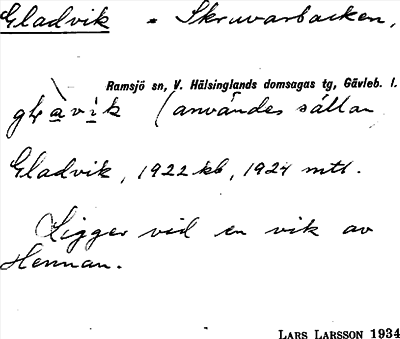 Gladvik = Skruvarbacken,
Ramsjö sn, V. Hälsinglands domsagas tg, Gävleb. l.
(användes sällan
Gladvik, 1922 kb, 1924 mtl.
Ligger vid en vik av
Hennan.
LARS LARSSON 1934